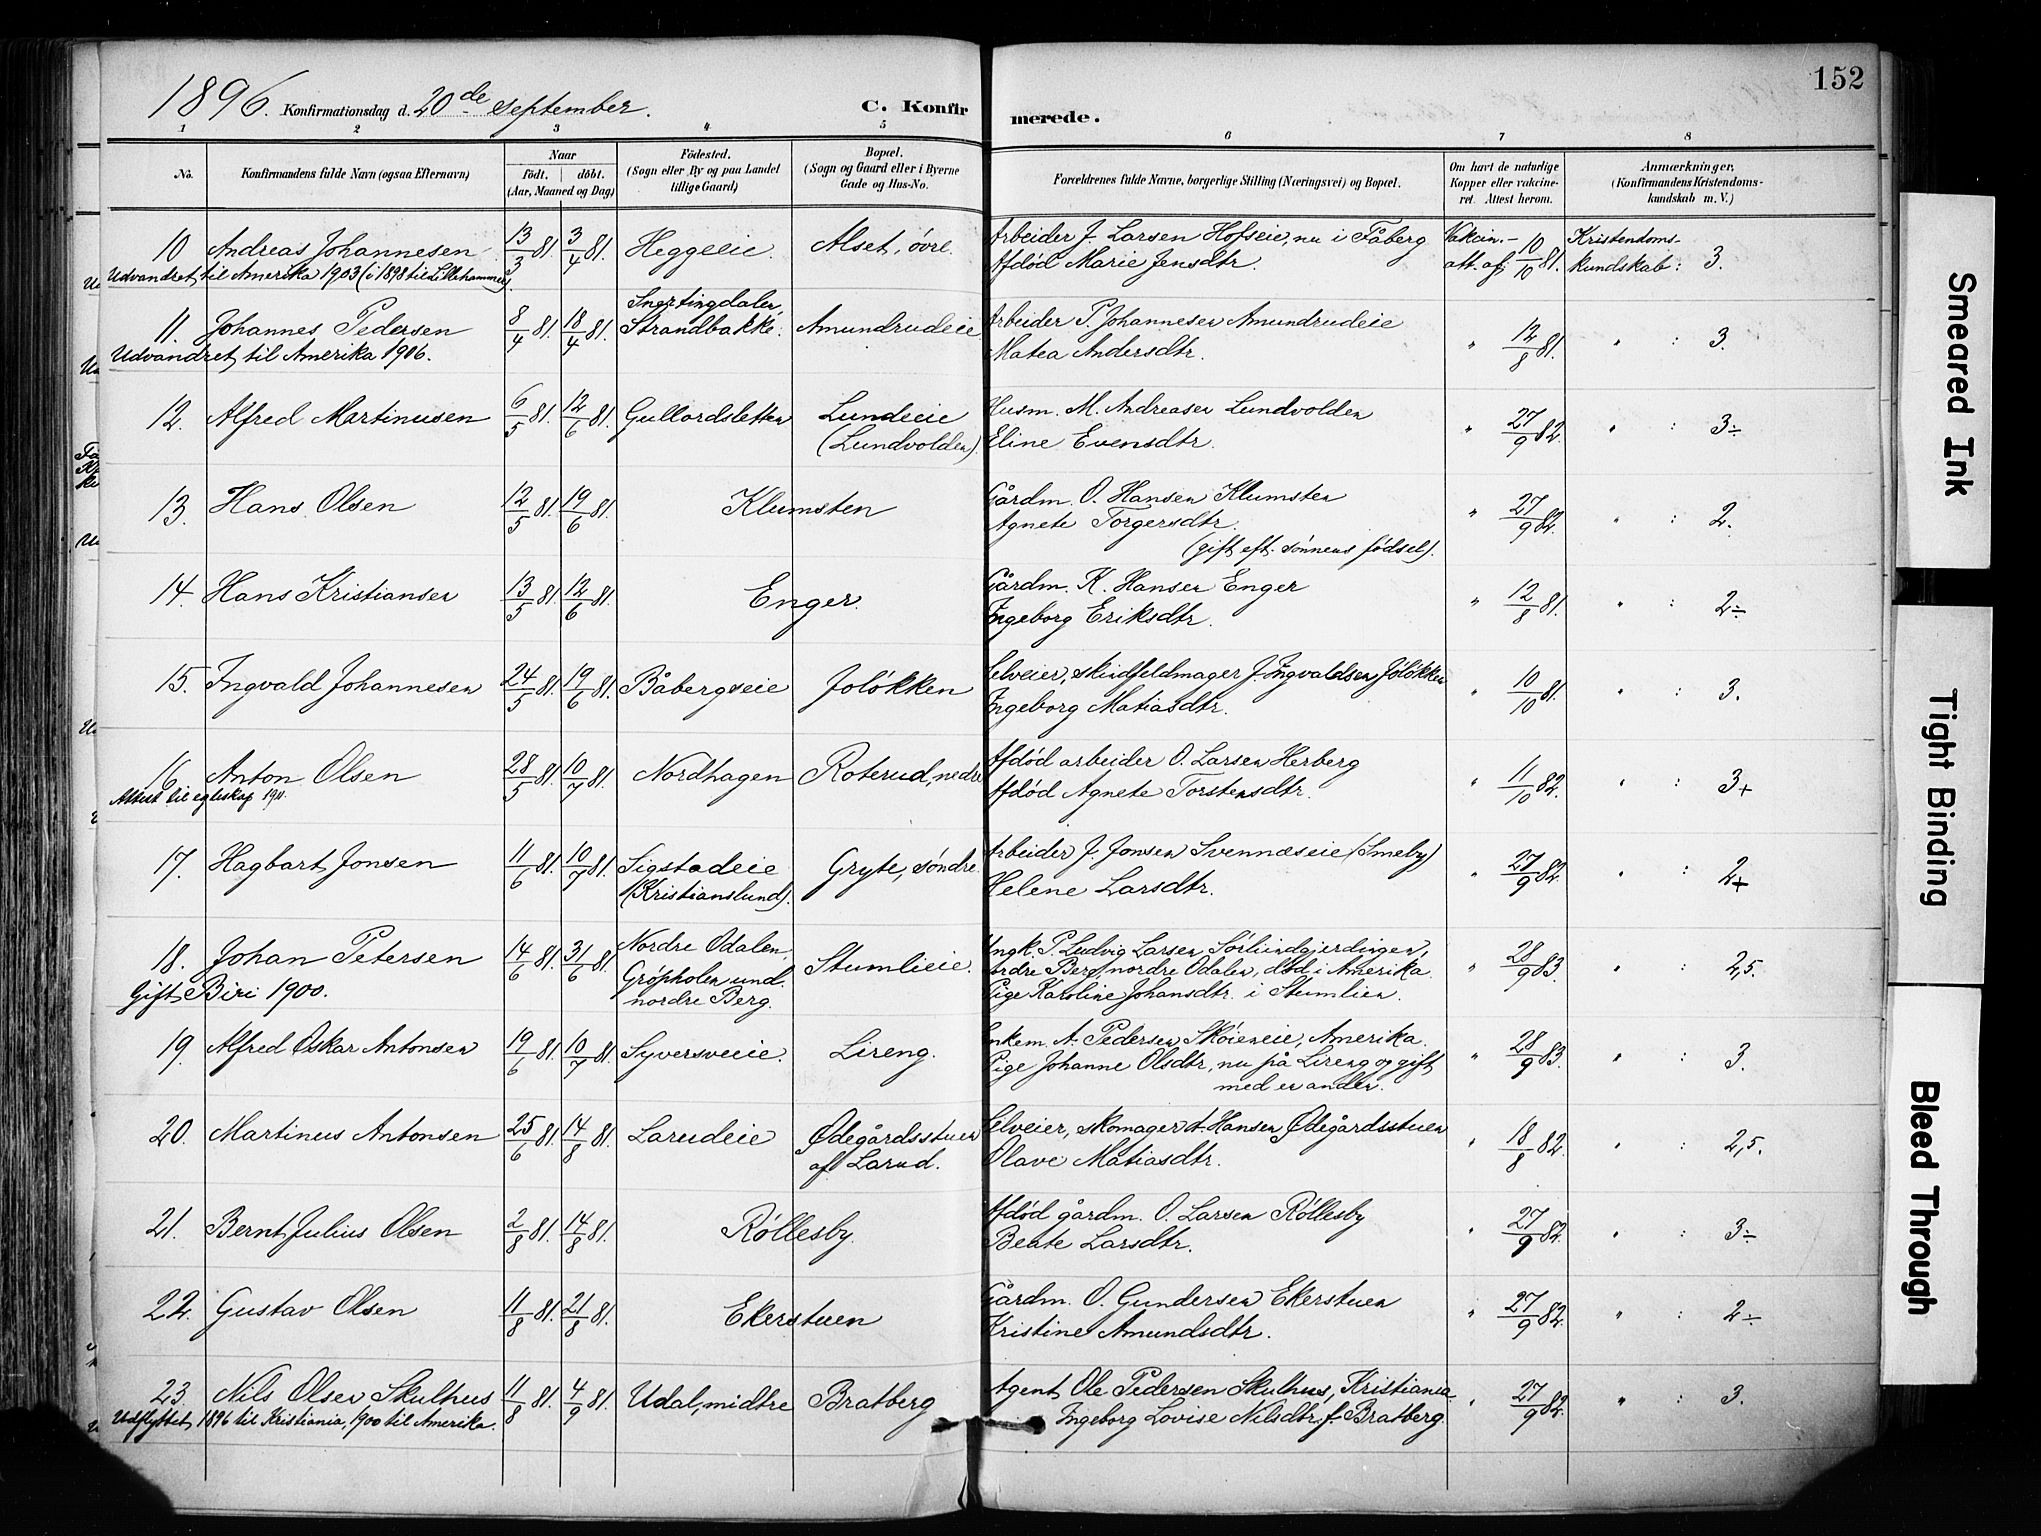 152
1896. Konfirmationsdag d. 20de September. C. Konfirmerede.
1 2 3 4 5 6 7 8
No. Konfirmandens fulde Navn (ogsaa Efternavn) Naar født. døbt. (Aar, Maaned og Dag) Fødested. (Sogn eller By og paa Landet tillige Gaard) Bopæl. (Sogn og Gaard eller i Byerne Gade og Hus-No.) Forældrenes fulde Navne, borgerlige Stilling (Næringsvei) og Bopæl. Om havt de naturlige Kopper eller vakcineret. Attest herom. Anmærkninger. (Konfirmandens Kristendomskundskab m. V.)
10 Andreas Johannesen 13/3 81. 3/4 81. Heggeeie Alset, øvre Arbeider J. Larsen Hofseie, nu i Fåberg Vakcin.- 10/10 81. Kristendoms-
Udvandret til Amerika 1903 (i 1898 til Lillehammer). Afdød Marie Jensdtr. att. af kundskab: 3.
11. Johannes Pedersen 8/4 81. 18/4 81. Snertingdalen, Strandbakke. Amundrudeie Arbeider P. Johannesen Amundrudeie " 12/8 81. " : 3.
Udvandret til Amerika 1906. Matea Andersdtr.
12. Alfred Martinusen 6/5 81. 12/6 81. Gullordsletten Lundeie Husm. M. Andreasen Lundvolden " 27/9 82. " : 3÷
(Lundvolden). Eline Evensdtr.
13. Hans Olsen 12/5 81. 19/6 81. Klumsten Gårdm. O. Hansen Klumsten " 27/9 82. " : 2.
Agnete Torgersdtr.
(gift eft. sønnens fødsel).
14. Hans Kristiansen 13/5 81. 12/6 81. Enger. Gårdm. K. Hansen Enger " 12/8 81. " : 2÷
Ingeborg Eriksdtr.
15. Ingvald Johannesen 24/5 81. 19/6 81. Båbergseie Joløkken Selveier, skindfeldmager J. Ingvaldsen Joløkken " 10/10 81. " : 3.
Ingeborg Matiasdtr.
16. Anton Olsen 28/5 81. 10/7 81. Nordhagen Roterud, nedre Afdød arbeider O. Larsen Herberg " 11/10 82. " : 3+
Attest til egteskap 1911. Afdød Agnete Torstensdtr.
17. Hagbart Jonsen 11/6 81. 10/7 81. Sigstadeie Gryte, søndre Arbeider J. Jonsen Svennæseie (Smeby) " 27/9 82. " : 2+
(Kristianslund). Helene Larsdtr.
18. Johan Petersen 14/6 81. 31/6 81. Nordre Odalen, Stumlieie. Ungk. P. Ludvig Larsen " 28/9 83. " : 2,5.
Gift, Biri 1900. Grøpholen und. nordre Berg, nordre Odalen, død i Amerika.
nordre Berg. Pige Karoline Johansdtr. i Stumlien.
19. Alfred Oskar Antonsen 19/6 81. 10/7 81. Syversveeie. Lireng. Enkem. A. Pedersen Skøieneie, Amerika. " 28/9 83. " : 3.
Pige Johanne Olsdtr., nu på Lireng og gift
med en anden.
20. Martinus Antonsen 25/6 81. 14/8 81. Larudeie Ødegårdsstuen Selveier, skomager A. Hansen Ødegårdsstuen " 18/8 82. " : 2,5.
af Larud. Olave Matiasdtr.
21. Bernt Julius Olsen 2/8 81. 14/8 81. Røllesby. Afdød gårdm. O. Larsen Røllesby " 27/9 82. " : 3÷
Beate Larsdtr.
22. Gustav Olsen 11/8 81. 21/8 81. Ekerstuen Gårdm. O. Gundersen Ekerstuen " 27/9 82. " : 2÷
Kristine Amundsdtr.
23. Nils Olsen Skulhus 11/8 81. 4/9 81. Udal, midtre Bratberg Agent Ole Pedersen Skulhus, Kristiania. " 27/9 82. " : 3.
Udflyttet 1896 til Kristiania, 1900 til Amerika. Ingeborg Lovise Nilsdtr. f. Bratberg.
Smeared Ink
Tight Binding
Bleed Through